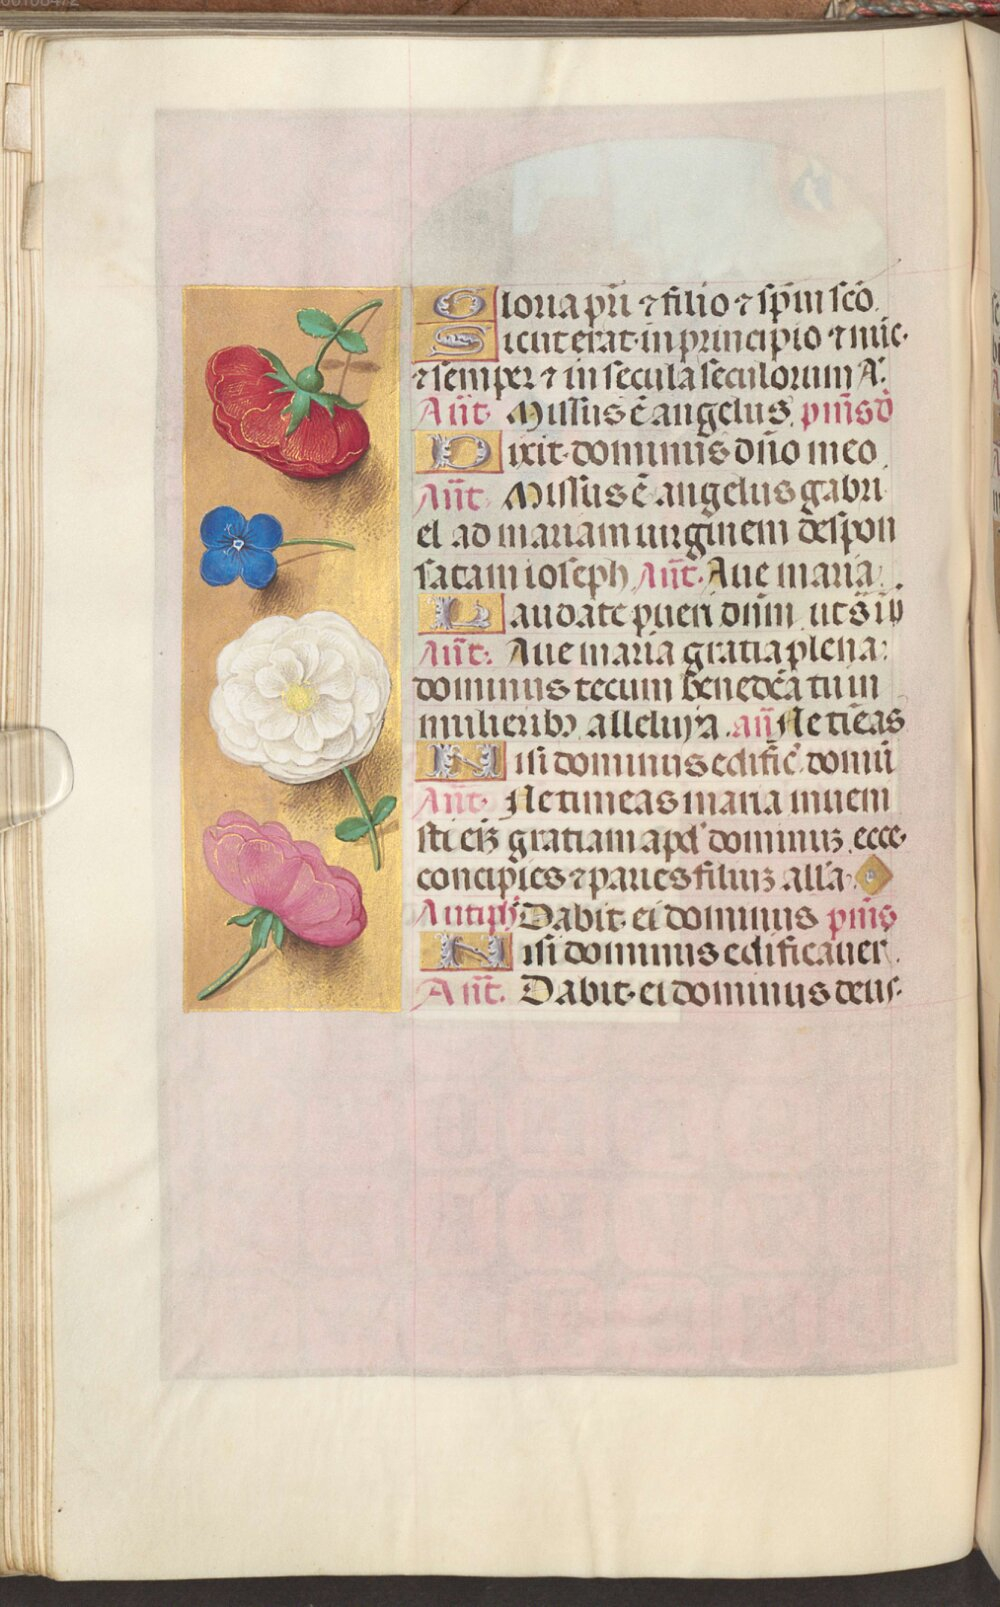 Gloria pri ⁊ filio ⁊ spiu sco.
Sicut erat in principio ⁊ nūc
⁊ semper ⁊ in secula seculorum A.
Añt. Missus ē angelus. pms d
Dixit dominus dño meo
Añt. Missus ē angelus gabri
el ad mariam uirginem despon
satam ioseph Añt. Aue maria
Laudate pueri dñm ut s
Añt. Aue maria gratia plena:
dominus tecum benedc̄a tu in
mulieribꝫ alleluya. añ Ne tīeas
Nisi dominus edific̄ domū
Añt. Ne timeas maria inueni
sti eīz gratiam apd' dominuz ecce
concipies ⁊ paries filiuz alla
Antiph Dabit ei dominus pms
Nisi dominus edificauer.
Añt. Dabit ei dominus deus